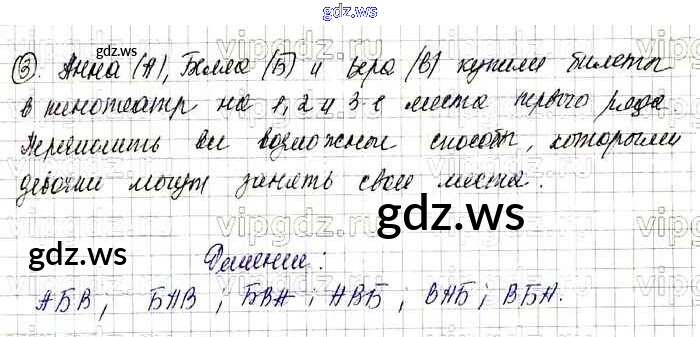 gdz.ws
③. Анна (А), Белла (Б) и Вера (В) купили билеты
в кинотеатр на 1, 2 и 3-е места первого ряда
Перечислить все возможные способы, которыми
девочки могут занять свои места.
Решение:
АБВ, БАВ; БВА; АВБ; ВАБ; ВБА.
gdz.ws
gdz.ws
gdz.ws
gdz.ws
gdz.ws
gdz.ws
gdz.ws